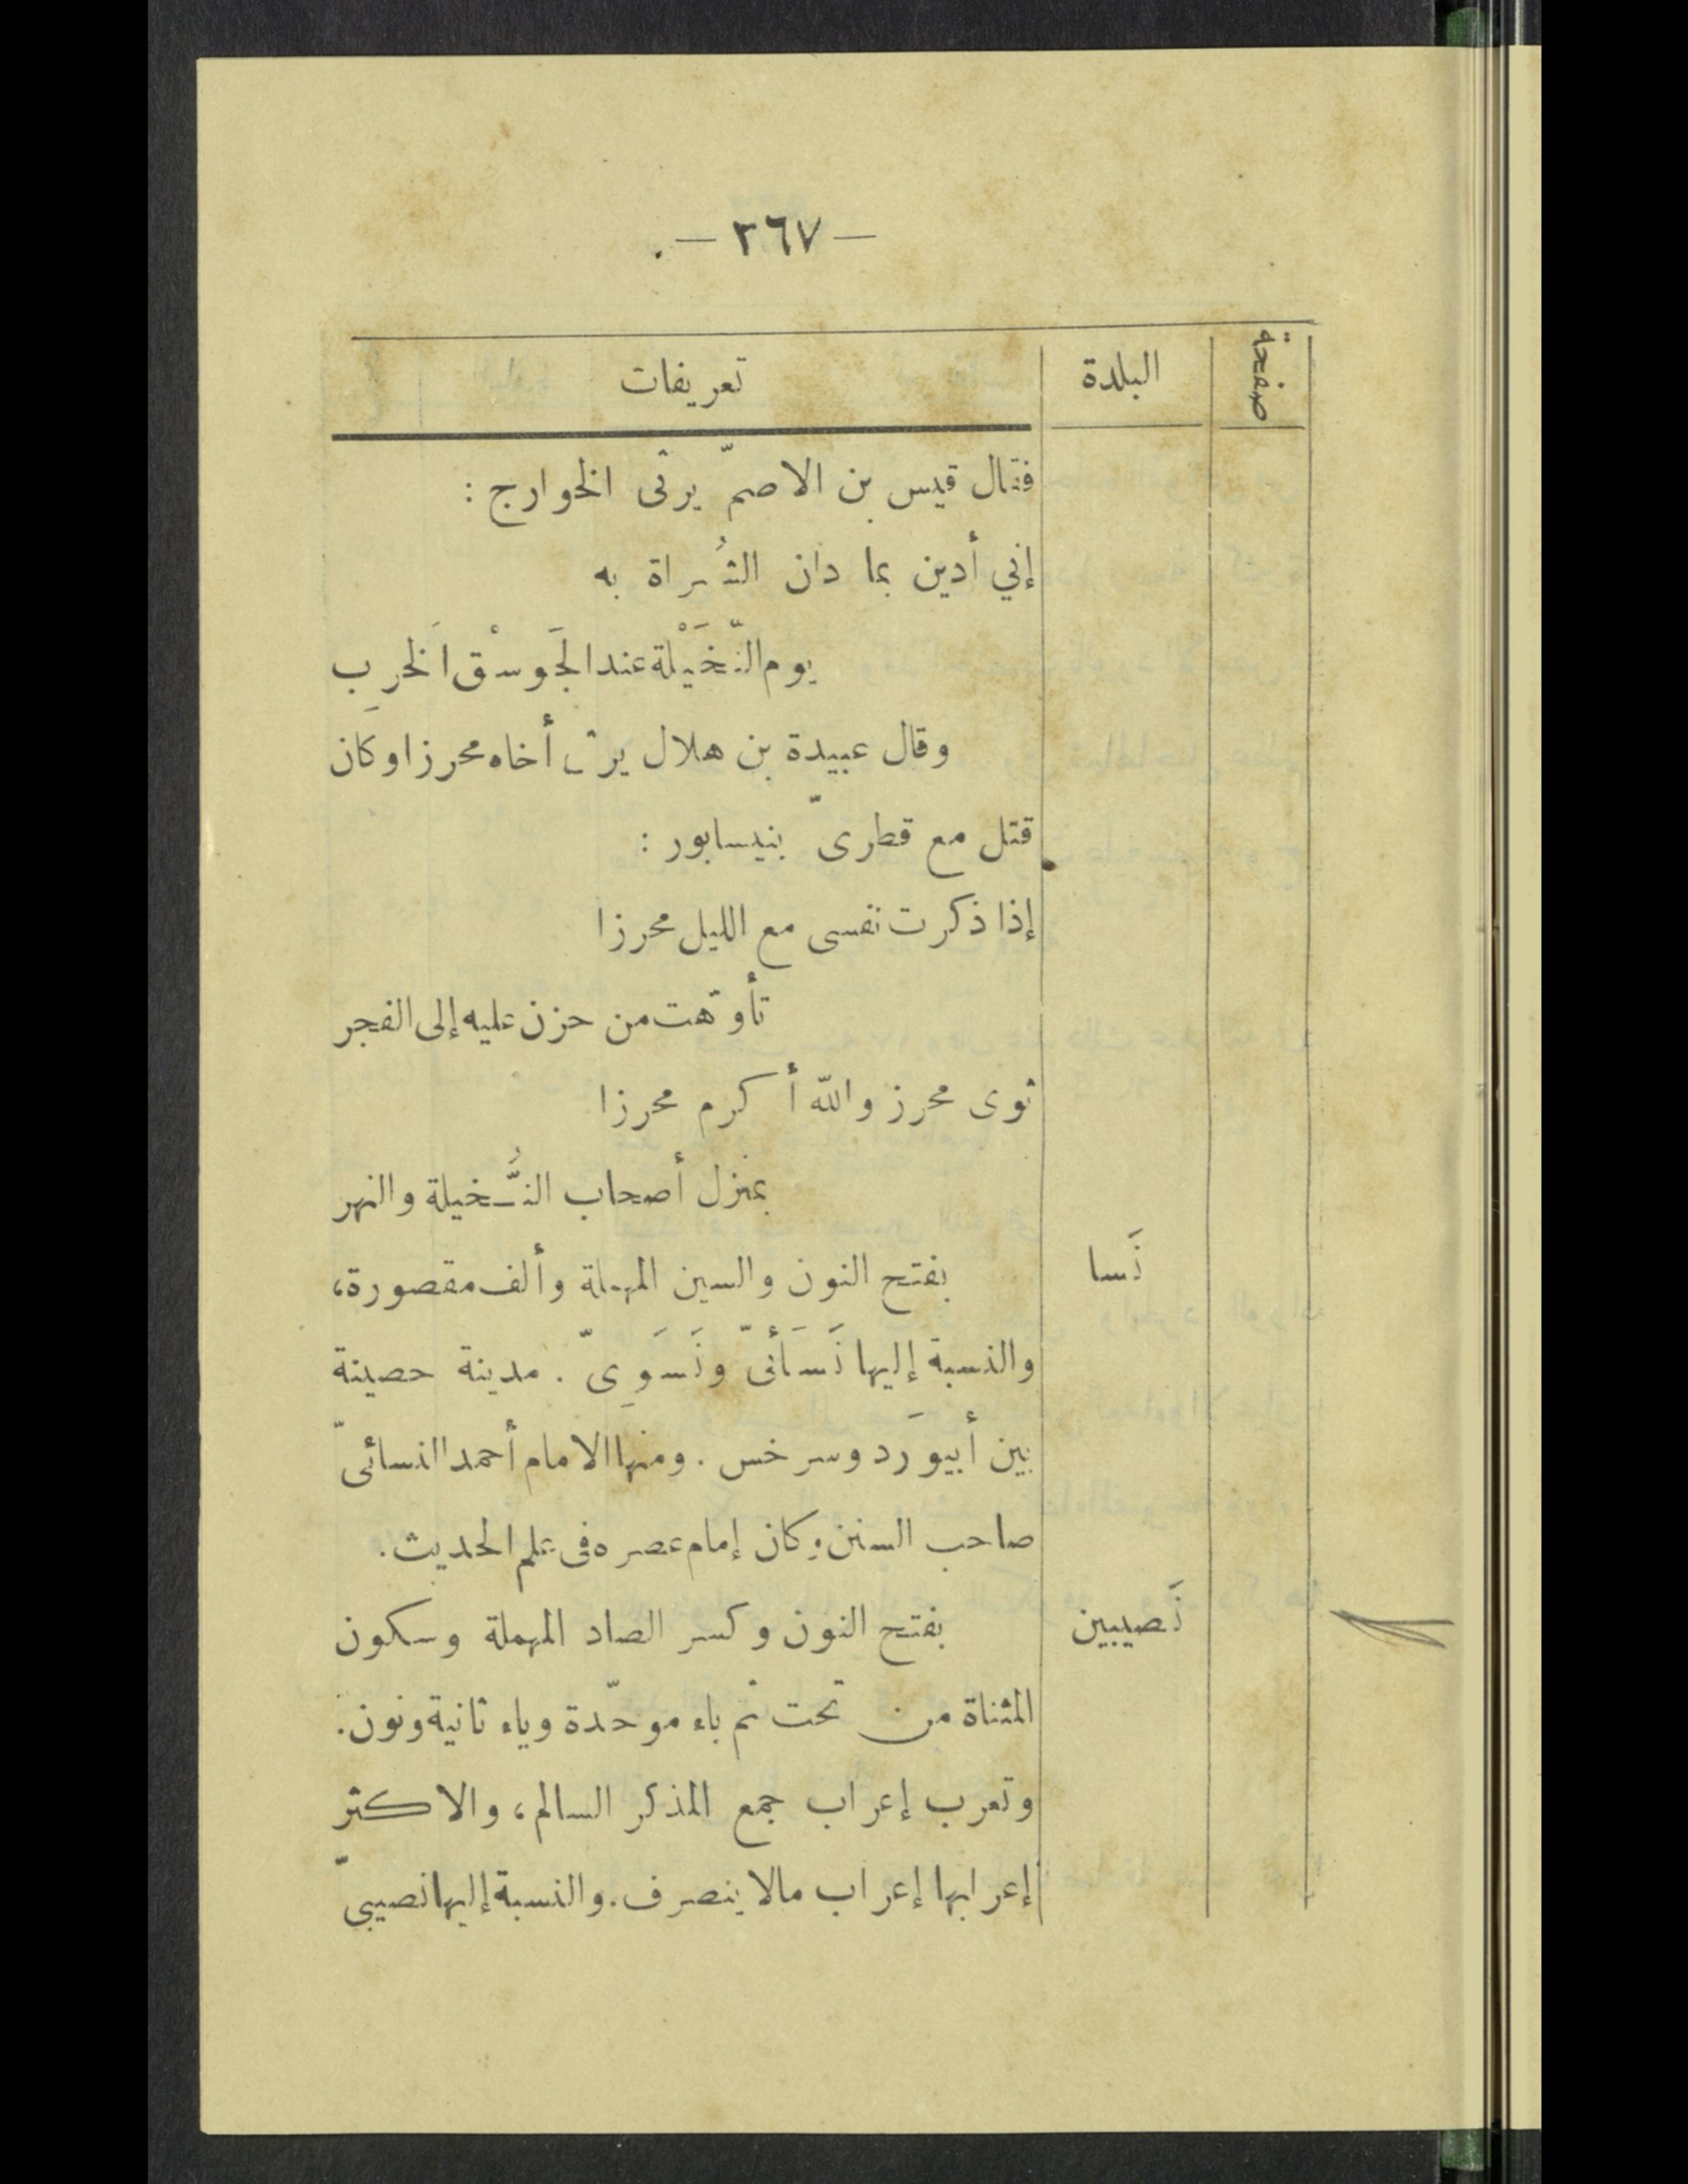 — ٣٦٧ — .
صفحة البلدة تعريفات
فقال قيس بن الاصمّ يرثى الخوارج :
إني أدين بما دان الشُراة به
يوم النّخَيْلة عند الجَوسْق الخَرِب
وقال عبيدة بن هلال يرثى أخاه محرزا وكان
قتل مع قطرىّ بنيسابور :
إذا ذكرت نفسى مع الليل محرزا
تأوّهت من حزن عليه إلى الفجر
ثوى محرز والله أكرم محرزا
بمنزل أصحاب النُّخيلة والنهر
نَسا بفتح النون والسين المهملة وألف مقصورة،
والنسبة إليها نَسَأئىّ ونَسَوِىّ . مدينة حصينة
بين أبيوَرد وسرخس . ومنها الامام أحمد النسائىّ
صاحب السنن وكان إمام عصره فى علم الحديث .
نَصيبين بفتح النون وكسر الصاد المهملة وسكون
المثناة من تحت ثم باء موحّدة وياء ثانية ونون .
وتعرب إعراب جمع المذكر السالم، والاكثر
إعرابها إعراب مالا ينصرف . والنسبة إليها نصيبىّ